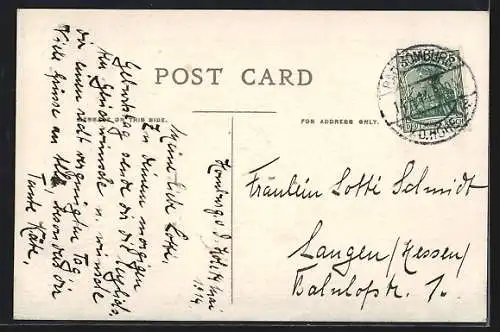 POST CARD
ON THIS SIDE.
FOR ADDRESS ONLY.
HOMBURG
Fräulein Lotti Schmidt
Langen/Hessen/
Bahnhofstr. 1.
Homburg v. d. Höhe
1914.
Meine liebe Lotti,
Zu deinem morgigen
Geburtstag sende dir die herzlichsten
Glückwünsche u. wünsche
dir einen recht vergnügten Tag.
Viele Grüsse an Alle besonders dir
Tante Käthe.